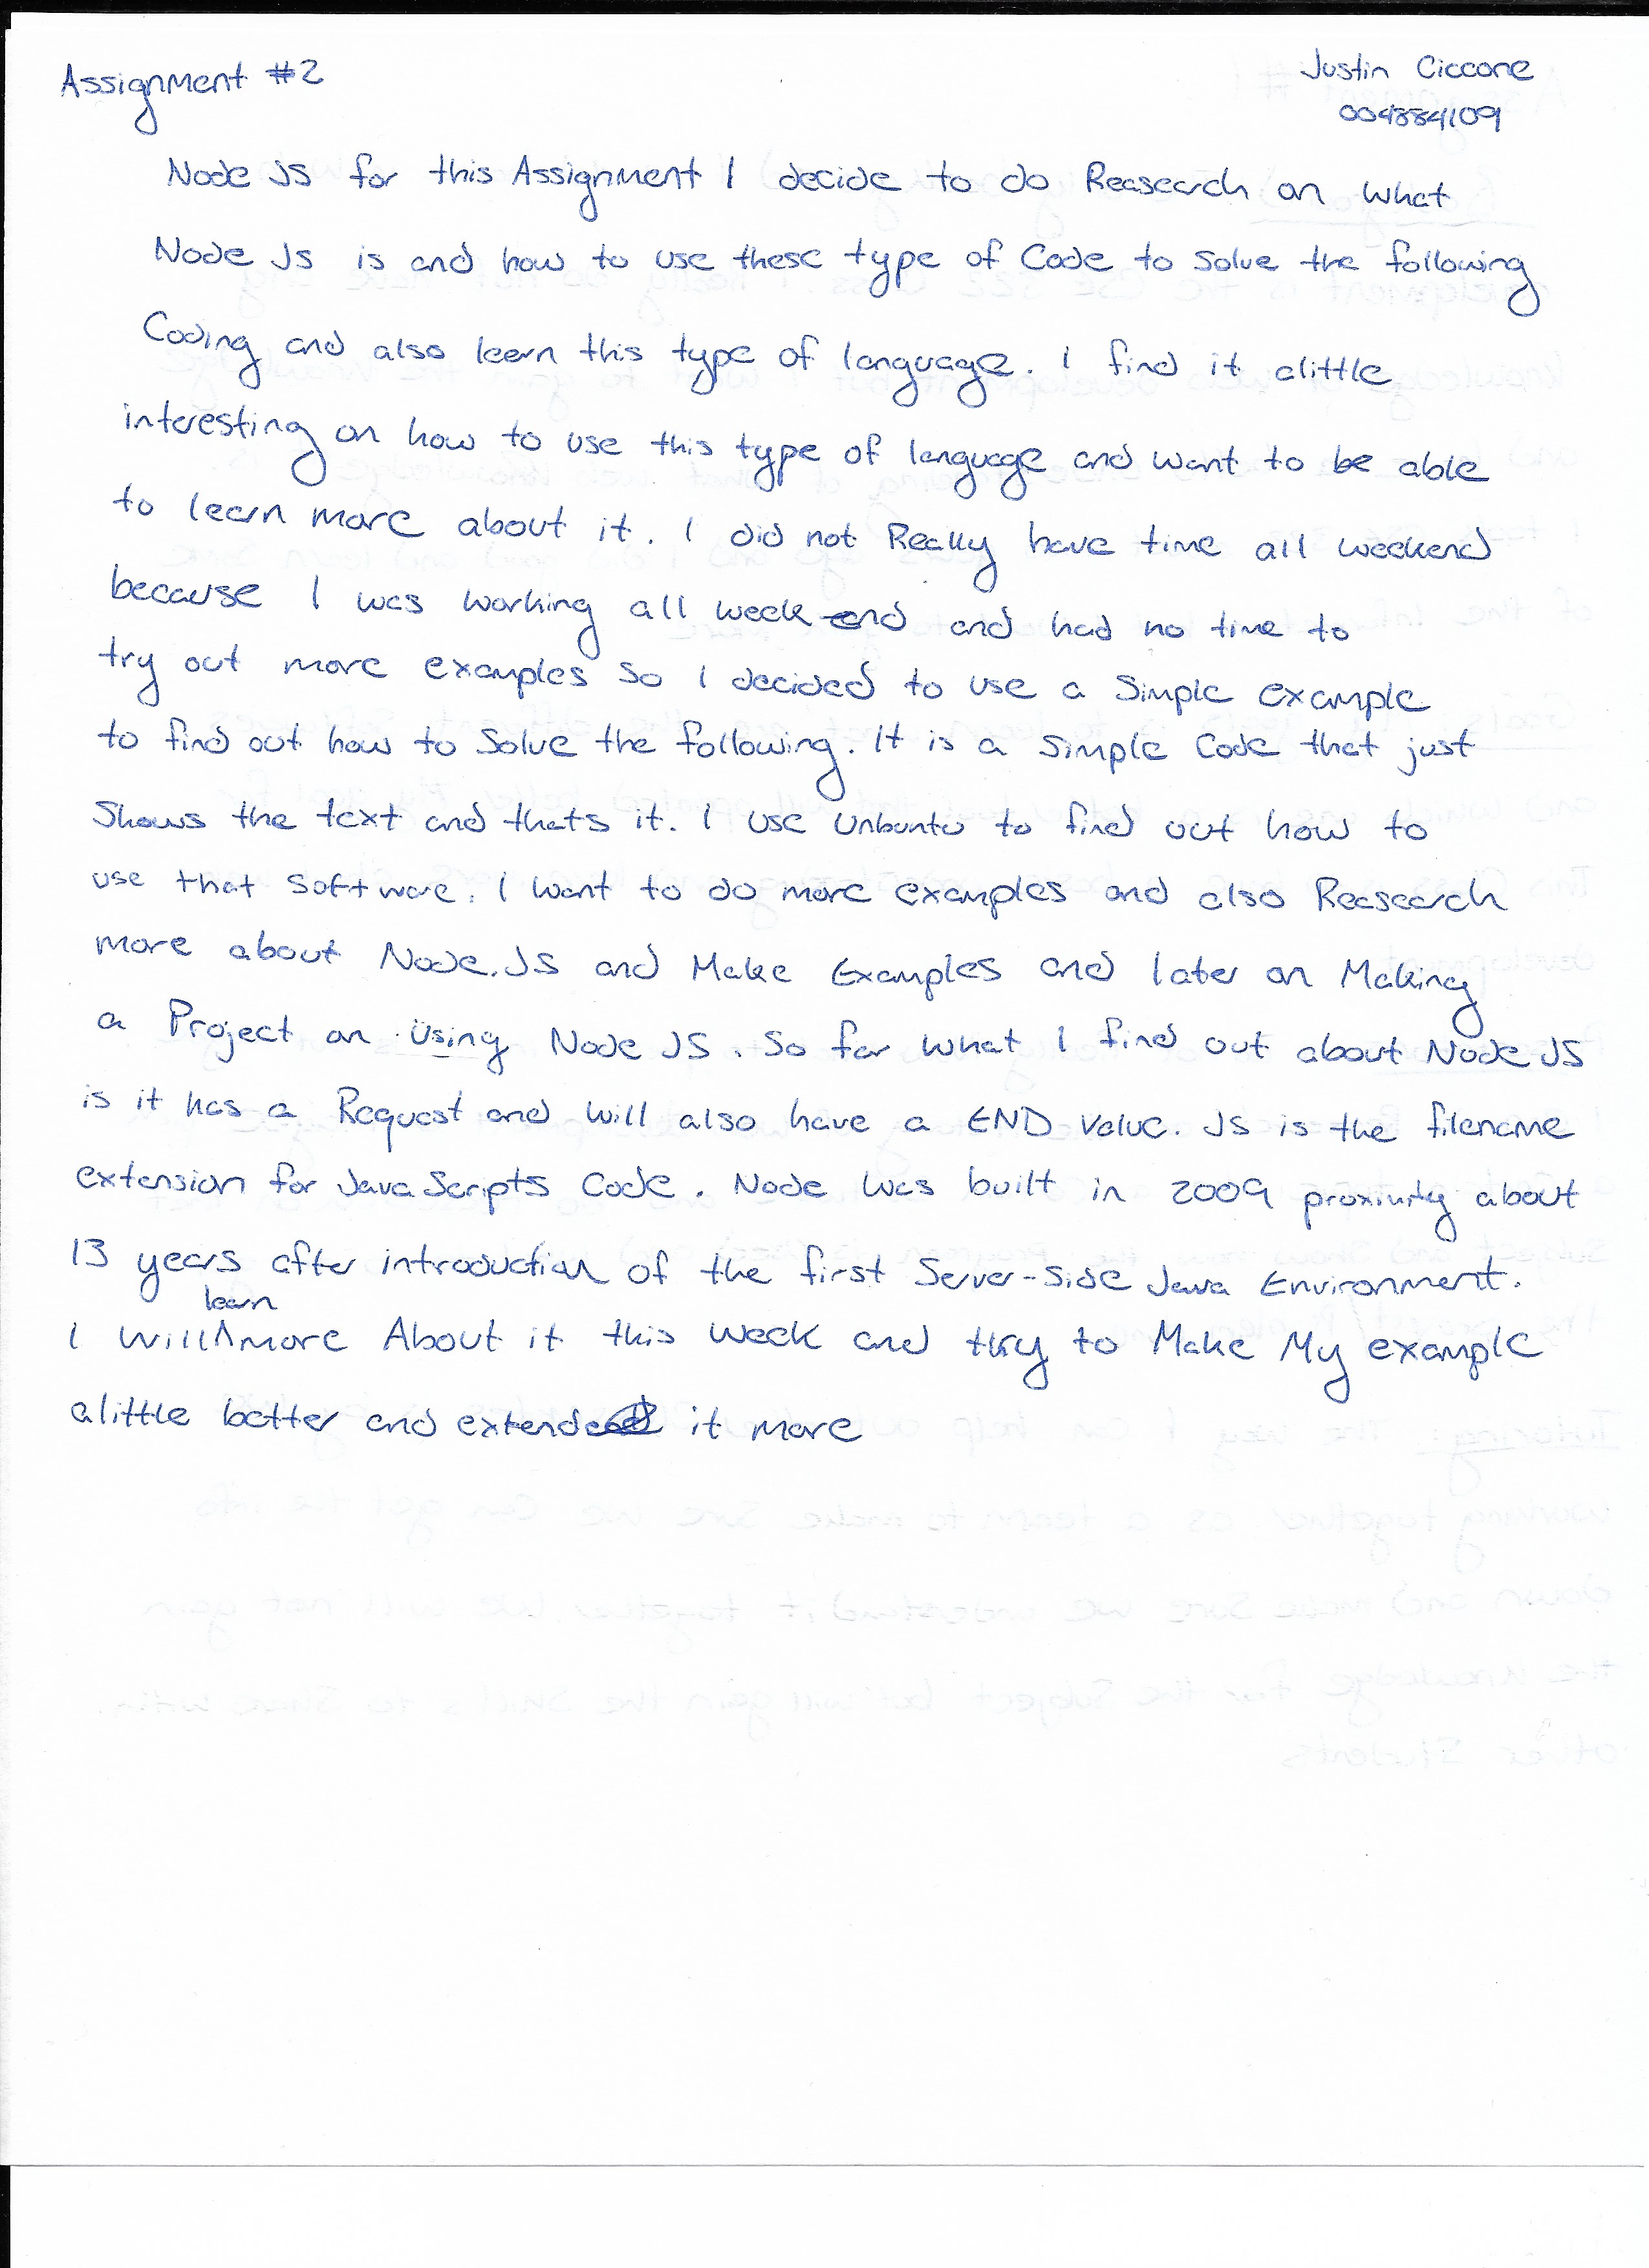 Assignment #2
Justin Ciccone
004884109
Node JS for this Assignment I decide to do Reasearch on what
Node Js is and how to use these type of Code to Solve the following
Coding and also learn this type of language. I find it alittle
interesting on how to use this type of language and want to be able
to learn more about it. I did not Really have time all weekend
because I was working all week end and had no time to
try out more examples So I decided to use a Simple example
to find out how to Solve the following. It is a Simple Code that just
Shows the text and thats it. I use Unbuntu to find out how to
use that Software. I want to do more examples and also Reasearch
more about Node.JS and Make Examples and later on Making
a Project on Using Node JS. So far what I find out about Node JS
is it has a Request and will also have a END Value. JS is the filename
extension for Java Scripts Code. Node was built in 2009 proximity about
13 years after introduction of the first Server-Side Java Environment.
I will learn more About it this week and try to Make My example
alittle better and extend it more